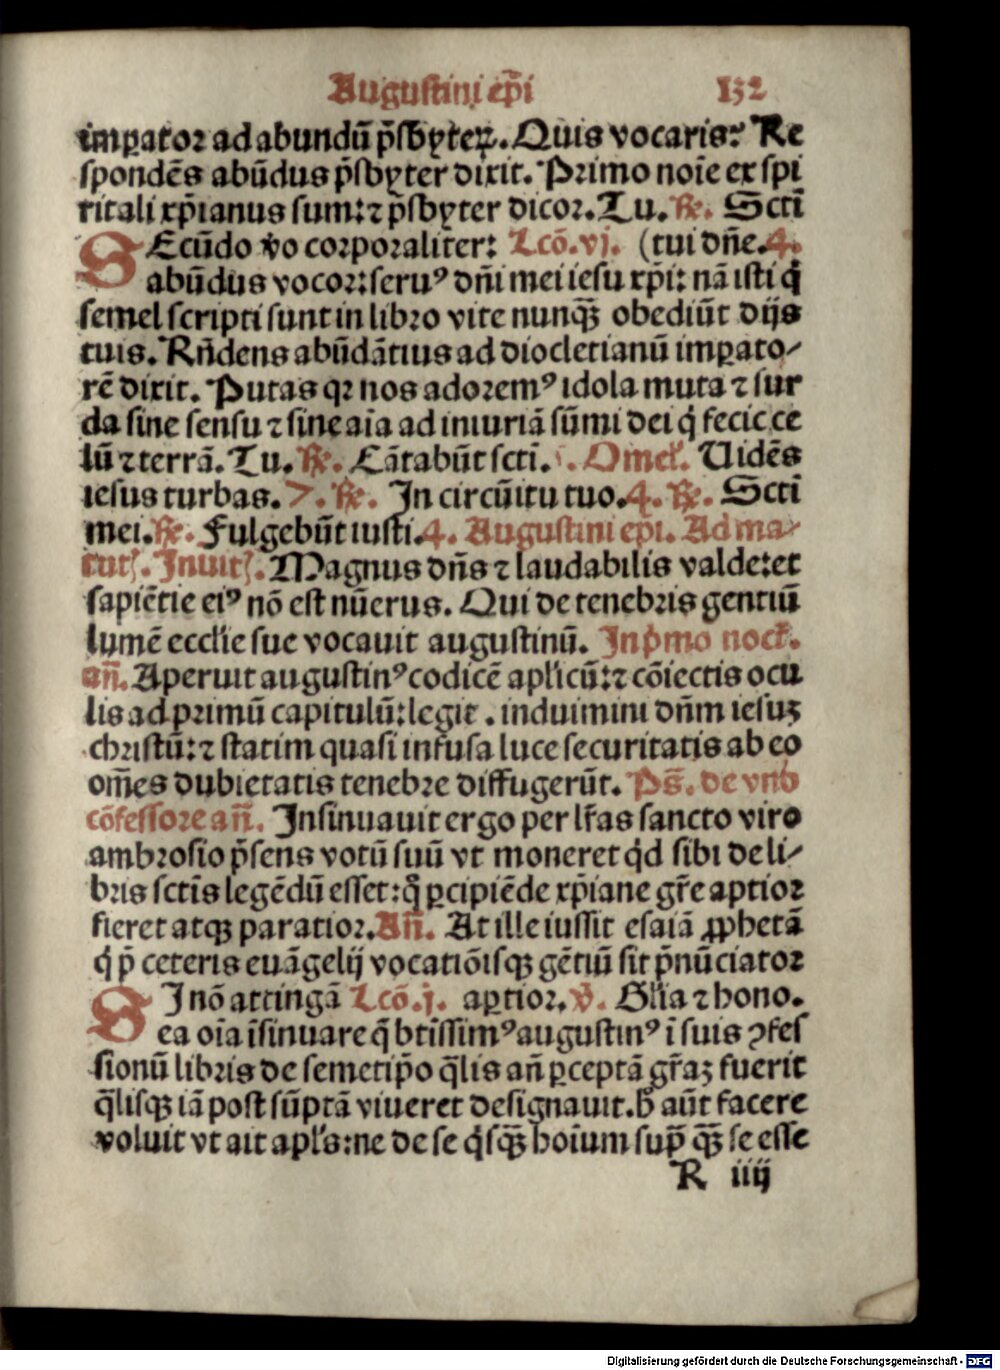 Augustini ep̄i 132
imꝑator ad abundū p̄sbyteꝝ. Quis vocaris? Re
spondēs abūdus p̄sbyter dixit. Primo noīe ex spi
ritali xp̄ianus sum: ⁊ p̄sbyter dicor. Tu. ℟. Sctī
SEcūdo v̄o corporaliter: Lcō. vj. (tui dn̄e. 4.
abūdus vocor: seruꝰ dn̄i mei iesu xp̄i: nā isti q̇
semel scripti sunt in libro vite nunqȝ̄ obediūt dijs
tuis. Rn̄dens abūdātius ad diocletianū imꝑato⸗
rē dixit. Putas qꝛ nos adoremꝰ idola muta ⁊ sur
da sine sensu ⁊ sine aīa ad iniuriā sūmi dei q̇ fecit ce
lū ⁊ terrā. Tu. ℟. Cātabūt scti. Omel̕. Uidēs
iesus turbas. 7. ℟. In circūitu tuo. 4. ℟. Sctī
mei. ℟. Fulgebūt iusti. 4. Augustini ep̄i. Ad ma⸗
tut̕. Inuit̕. Magnus dn̄s ⁊ laudabilis valde: et
sapiētie eiꝰ nō est nūerus. Qui de tenebris gentiū
lumē eccl̄ie sue vocauit augustinū. In p̄mo noct̕.
an̄. Aperuit augustinꝰ codicē apl̄icū: ⁊ cōiectis ocu
lis ad primū capitulū: legit. induimini dn̄m iesuȝ
christū: ⁊ statim quasi infusa luce securitatis ab eo
om̄es dubietatis tenebre diffugerūt. Ps̄. de vno
cōfessore an̄. Insinuauit ergo per lr̄as sancto viro
ambrosio p̄sens votū suū vt moneret q̇d sibi de li⸗
bris sctīs legēdū esset: q̄ ꝑcipiēde xp̄iane gr̄e aptior
fieret atqȝ paratior. An̄. At ille iussit esaiā ꝓphetā
q̇ p̄ ceteris euāgelij vocatiōisqȝ gētiū sit p̄nūciator
SI nō attingā Lcō. j. apertior. v̄. Gl̄ia ⁊ hono.
ea oīa īsinuare q̄ btīssimꝰ augustinꝰ ī suis ꝯfes
sionū libris de semetip̄o q̄lis an̄ ꝑceptā gr̄aȝ fuerit
q̄lisqȝ iā post sūptā viueret designauit. h̄ aūt facere
voluit vt ait apl̄s: ne de se q̇sqȝ̄ hoīum sup̄ qȝ̄ se esse
R iiij
Digitalisierung gefördert durch die Deutsche Forschungsgemeinschaft - DFG